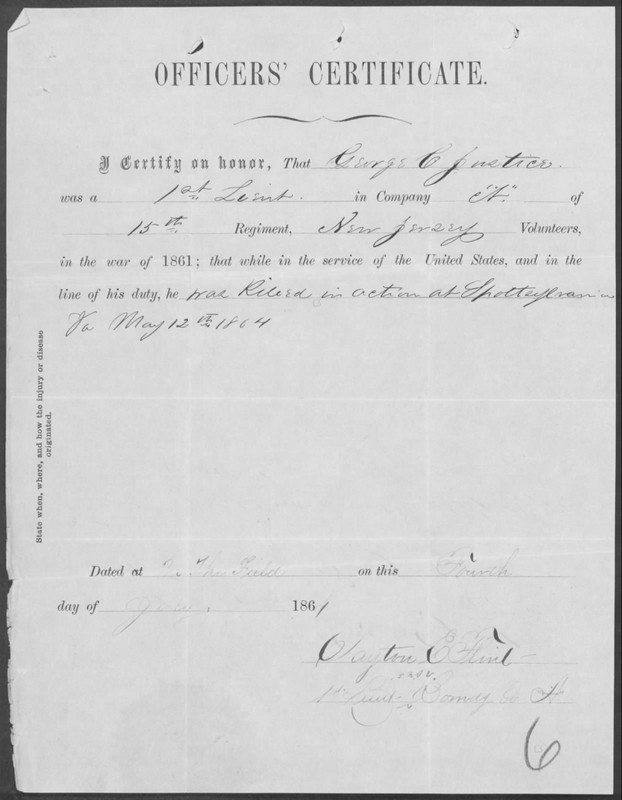 OFFICERS' CERTIFICATE.
I Certify on honor, That George C Justice
was a 1st Lieut. in Company "A" of
15th Regiment, New Jersey Volunteers,
in the war of 1861; that while in the service of the United States, and in the
line of his duty, he was Killed in action at Spottsylvania
Va May 12th 1864
State when, where, and how the injury or disease
originated.
Dated at In The Field on this Fourth
day of 186
Clayton E Flint
1st Lieut Comdg Co A
6